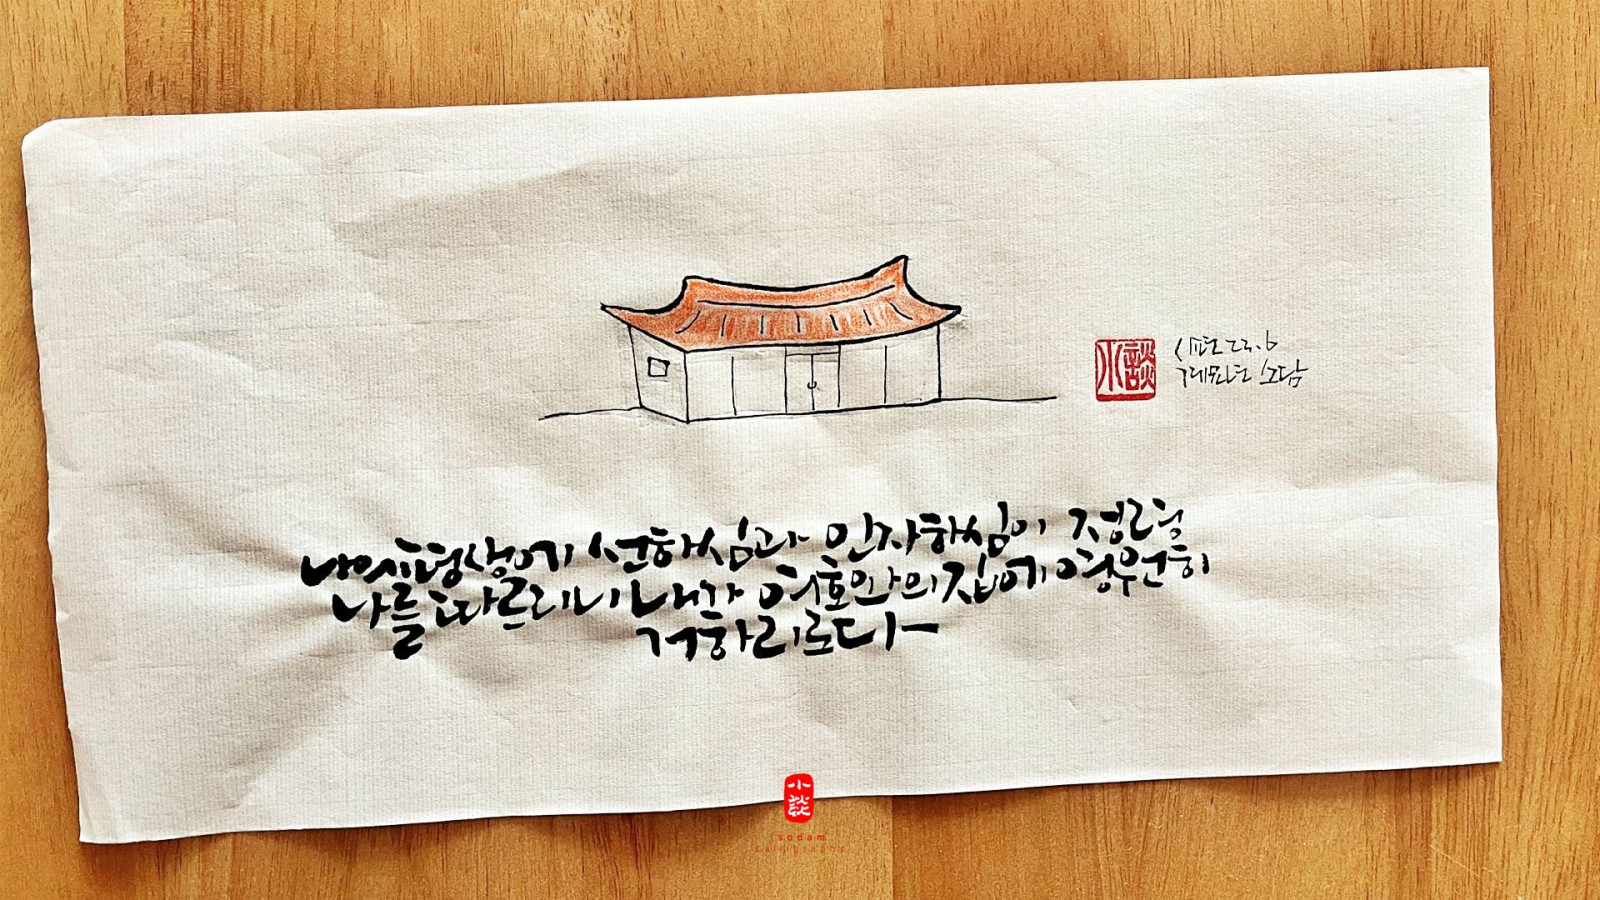 小談
시편 23.6
계묘년 소담
나의 평생에 선하심과 인자하심이 정령
나를 따르리니 내가 여호와의 집에 영원히
거하리로다
小談
sodam
calligraphy